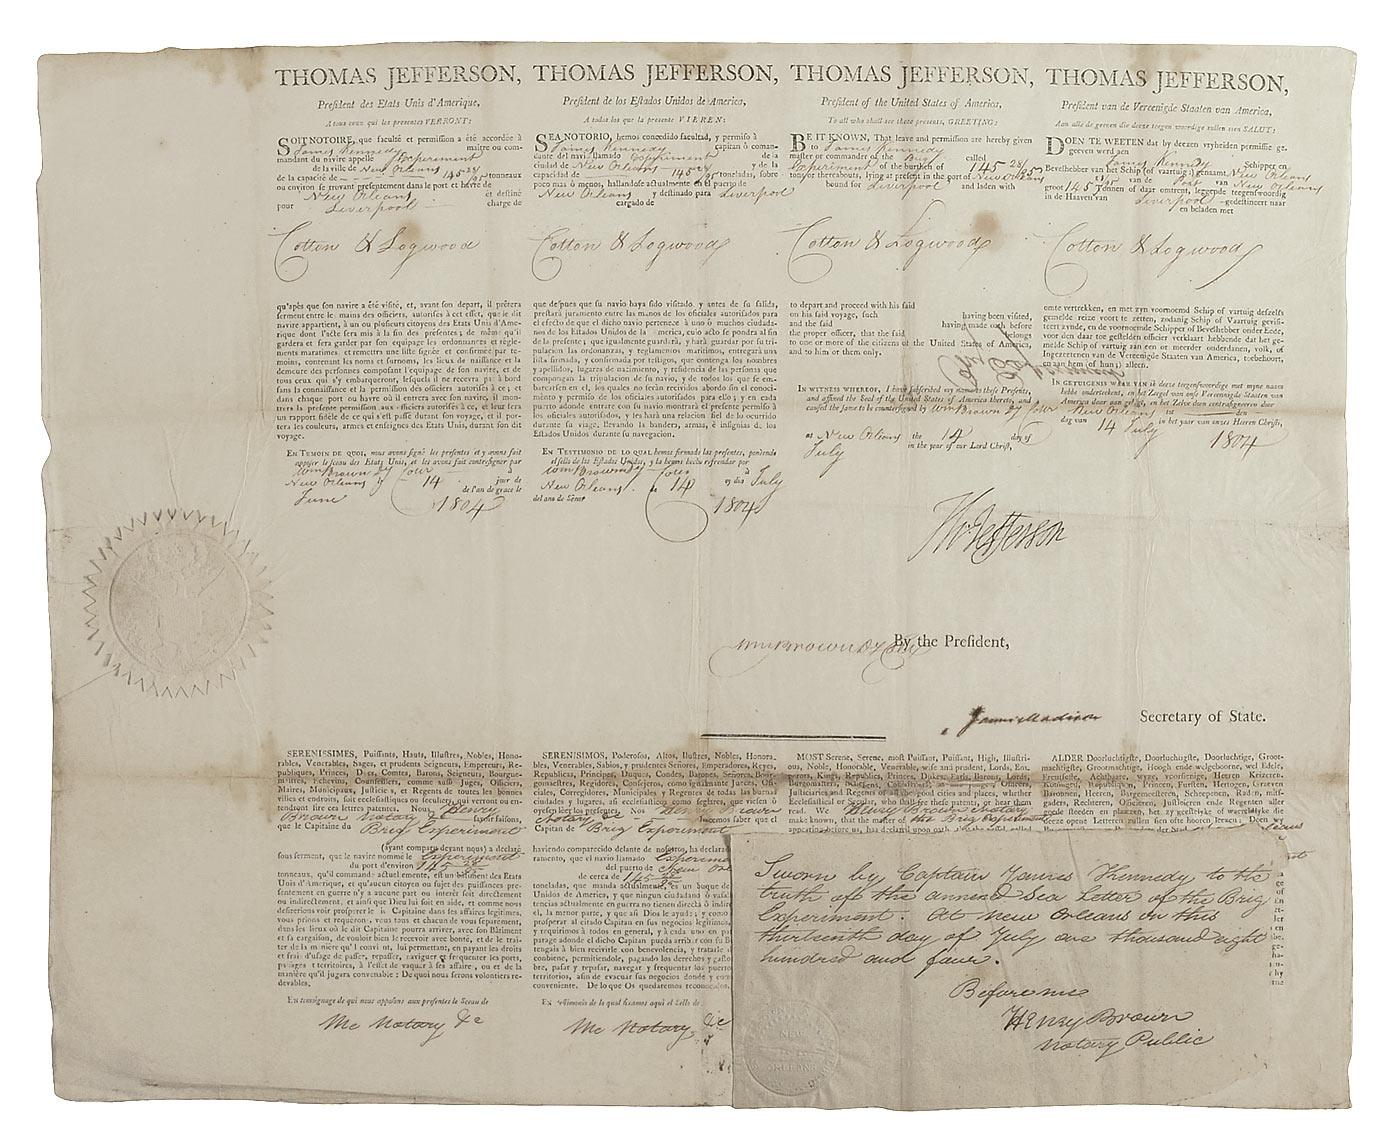 THOMAS JEFFERSON,
Preſident des Etats Unis d'Amerique,
A tous ceux qui les preſentes VERRONT:
SOIT NOTOIRE, que faculté et permiſſion a été accordée à
James Kennedy maître ou com-
mandant du navire appelle Experiment
de la ville de New Orleans
de la capacité de 145 28/95 tonneaux
ou environ ſe trouvant preſentement dans le port et havre de
New Orleans et deſtiné
pour Liverpool chargé de
Cotton & Logwood
qu'après que ſon navire a été viſité, et, avant ſon depart, il prêtera
ſerment entre les mains des officiers, autoriſés à cet effet, que le dit
navire appartient, à un ou pluſieurs citoyens des Etats Unis d'Ame-
rique dont l'acte ſera mis à la fin des preſentes; de même qu'il
gardera et ſera garder par ſon equipage les ordonnances et règle-
ments maritimes, et remettra une liſte ſignée et confirmée par te-
moins, contenant les noms et ſurnoms, les lieux de naiſſance et la
demeure des perſonnes compoſant l'equipage de ſon navire, et de
tous ceux qui s'y embarqueront, leſquels il ne recevra pas à bord
ſans la connaiſſance et la permiſſion des officiers autoriſés à ce; et
dans chaque port ou havre où il entrera avec ſon navire, il mon-
trera la preſente permiſſion aux officiers autoriſés à ce, et leur fera
un rapport fidèle de ce qui s'eſt paſſé durant ſon voyage, et il por-
tera les couleurs, armes et enſeignes des Etats Unis, durant ſon dit
voyage.
EN TEMOIN DE QUOI, nous avons ſigné les preſentes et y avons fait
appoſer le ſceau des Etats Unis, et les avons fait contreſigner par
Wm Brown Dy Coll
New Orleans le 14 jour de
June de l'an de grace le 1804
THOMAS JEFFERSON,
Preſident de los Eſtados Unidos de America,
A todos los que la preſente VIEREN:
SEA NOTORIO, hemos concedido facultad, y permiſo à
James Kennedy capitan ò coman-
dante del navi llamado Experiment de la
ciudad de New Orleans y de la
capacidad de 145 28/95 toneladas, ſobre
poco mas ò menos, hallandoſe actualmente en el puerto de
New Orleans y deſtinado para Liverpool
cargado de
Cotton & Logwood
que deſpues que ſu navio haya ſido viſitado, y antes de ſu ſalida,
preſtará juramento entre las manos de los oficiales autorizados para
el efecto de que el dicho navio pertenece à uno ò muchos ciudada-
nos de los Eſtados Unidos de America, cuyo acto ſe pondra al fin
de la preſente; que igualmente guardará, y hará guardar por ſu tri-
pulacion las ordinanzas, y reglamentos maritimos, entregará una
liſta firmada, y confirmada por teſtigos, que contenga los nombres
y apellidos, lugares de nacimiento, y reſidencia de las perſonas que
compongan la tripulacion de ſu navio, y de todos los que ſe em-
barcaren en el, los quales no ſerán recividos abordo ſin el conoci-
miento y permiſo de los oficiales autorizados para ello; y en cada
puerto adonde entrare con ſu navio moſtrará el preſente permiſo à
los oficiales autorizados, y les hará una relacion fiel de lo ocurrido
durante ſu viage, llevando la bandera, armas, è inſignias de los
Eſtados Unidos durante ſu navegacion.
EN TESTIMONIO DE LO QUAL hemos firmado las preſentes, poniendo
el ſello de los Eſtados Unidos, y la hemos hecho refrendar por
Wm Brown Dy Coll
New Orleans à 14 July
del ano de 1804
THOMAS JEFFERSON,
Preſident of the United States of America,
To all who ſhall ſee theſe preſents, GREETING:
BE IT KNOWN, That leave and permiſſion are hereby given
to James Kennedy
maſter or commander of the Brig called
Experiment of the burthen of 145 28/95
tons or thereabouts, lying at preſent in the port of New Orleans
bound for Liverpool and laden with
Cotton & Logwood
to depart and proceed with his ſaid
on his ſaid voyage, ſuch having been viſited,
and the ſaid having made oath before
the proper officer, that the ſaid belongs
to one or more of the citizens of the United States of America,
and to him or them only.
IN WITNESS WHEREOF, I have ſubſcribed my name to theſe Preſents,
and affixed the Seal of the United States of America thereto, and
cauſed the ſame to be counterſigned by Wm Brown Dy Coll
at New Orleans the 14 day of
July in the year of our Lord Chriſt,
THOMAS JEFFERSON,
Preſident van de Vereenigde Staaten van America,
Aan alle de geenen die deeze tegenwoordige zullen zien SALUT:
DOEN TE WEETEN dat by deezen vryheiden permiſſie ge-
geeven werd aan James Kennedy
Schipper en
Bevelhebber van het Schip (of vaartuig) genaamt
van de Port van New Orleans
groot 145 Tonnen of daar omtrent, leggende tegenwoordig
in de Haaven van Liverpool gedeſtineert naar
en beladen met
Cotton & Logwood
omte vertrekken, en met zyn voornoemd Schip of Vartuig deſſelfs
gemelde reize voort te zetten, zodanig Schip of Vartuig geviſi-
teert zynde, en de voornoemde Schipper of Bevelhebber onder Eede,
voor den daar toe geſtelden officier verklaart hebbende dat het ge-
melde Schip of vartuig aan een or meerder onderdanen, volk, of
Ingezetenen van de Vereenigde Staaten van America, toebehoort,
en aan hem (of hun) alleen.
IN GETUIGENIS WAAR VAN ik deeze tegenswoordige met myne naam
hebbe onderteekent, en het Zeegel van onſe Vereenigde Staaten van
America daar aan gehegt, en het Zelve doen contraſigneren door
New Orleans den
dag van 14 July in het jaar van onſes Heeren Chriſti,
1804
Th: Jefferson
Wm Brown Dy Coll
By the Preſident,
James Madison Secretary of State.
SERENISSIMES, Puiſſants, Hauts, Illuſtres, Nobles, Hono-
rables, Venerables, Sages, et prudents Seigneurs, Empereurs, Re-
publiques, Princes, Ducs, Comtes, Barons, Seigneurs, Bourgue-
maitres, Echevins, Conſeillers, comme auſſi Juges, Officiers,
Maires, Municipaux, Juſticie s, et Regents de toutes les bonnes
villes et endroits, ſoit eccleſiaſtiques ou ſeculiers, qui verront ou en-
tendront lire ces lettres patentes. Nous, Henry
Brown Notary &c ſavoir faiſons,
que le Capitaine du Brig Experiment
(ayant comparu devant nous) a declaré
ſous ſerment, que le navire nommé le Experiment
du port d'environ 145 28/95
tonneaux, qu'il commande actuellement, eſt un bâtiment des Etats
Unis d'Amerique, et qu'aucun citoyen ou ſujet des puiſſances pre-
ſentement en guerre n'y a aucune part ou intereſt ſoit directement
ou indirectement, et ainſi que Dieu lui ſoit en aide, et comme nous
deſirerions voir proſperer le dit Capitaine dans ſes affaires legitimes,
vous prions et requérons, vous tous et chacun de vous ſeparement,
dans les lieux où le dit Capitaine pourra arriver, avec ſon Bâtiment
et ſa cargaiſon, de vouloir bien le recevoir avec bonté, et de le trai-
ter de la manière qu'il convient, lui permettant, en payant les droits
et frais d'uſage de paſſer, repaſſer, naviguer et frequenter les ports,
paſſages et territoires, à l'effet de vaquer à ſes affaires, ou et de la
manière qu'il jugera convenable: De quoi nous ſerons volontiers re-
devables.
En temoignage de quoi nous appoſons aux preſentes le Sceau de
Me Notary &c
SERENISIMOS, Poderoſos, Altos, Iluſtres, Nobles, Honora-
bles, Venerables, Sabios, y prudentes Señores, Emperadores, Reyes,
Republicas, Principes, Duques, Condes, Barones, Señores, Bour-
gmaeſtres, Regidores, Conſejeros, como igualmente Jueces, Ofi-
ciales, Corregidores, Municipales y Regentes de todas las buenas
ciudades y lugares, aſi eccleſiaſticos como ſeglares, que vieſen ò
oyeſen leer las preſentes, Nos Henry Brown
Notary &c hacemos ſaber que el
Capitan de Brig Experiment
haviendo comparecido delante de noſotros, ha declara
ramento, que el navio llamado Experime
del puerto de New Orl
de cerca de 145 28/95
toneladas, que manda actualmente, es un buque de
Unidos de America, y que ningun ciudadano ò vaſal
tencias actualmente en guerra no tienen directa ò indire
te, la menor parte, y que aſi Dios le ayude; y como
proſperar al citado Capitan en ſus negocios legitimos,
y requirimos à todos en general, y à cada uno en par
parage adonde el dicho Capitan pueda arribar con ſu B
tengais à bien recivirle con benevolencia, y tratarle de
combiene, permitiendole, pagando los derechos y gaſtos
bre, paſar y repaſar, navegar y frequentar los puertos
territorios, afin de evacuar ſus negocios donde y como
conveniente. De lo que Os quedaremos reconocidos.
En teſtimonio de lo qual fixamos aqui el Sello de
Me Notary &c
MOST Serene, Serene, moſt Puiſſant, Puiſſant, High, Illuſtri-
ous, Noble, Honorable, Venerable, wiſe and prudent, Lords, Em-
perors, Kings, Republics, Princes, Dukes, Earls, Barons, Lords,
Burgomaſters, Schepens, Counſellors, as alſo Judges, Officers,
Juſticiaries and Regents of all the good cities and places, whether
Eccleſiaſtical or Secular, who ſhall ſee theſe patents, or hear them
read. We Henry Brown Notary
make known, that the maſter of the Brig Experiment
appearing before us, has declared upon oath, that the veſſel called
ALDER Doorluchtigſte, Doorluchtigſte, Doorluchtige, Groot-
machtigſte, Grootmachtige, Hoogh ende welgeboorne, wel Edele,
Erentfeſte, Achtbaare, wyze, voorſienige, Heeren Keizeren,
Koningen, Republyken, Princen, Furſten, Hertogen, Graven,
Baronnen, Heeren, Burgemeeſteren, Schepenen, Raden, mitſ-
gaders, Rechteren, Officieren, Juſticieren ende Regenten aller
goede ſteden en plaetzen, het zy geeſtelyke of waereldlyke die
deeze opene Letteren zullen zien ofte hooren leezen: Doen wy
Sworn by Captain James Kennedy to the
truth of the annexed Sea Letter of the Brig
Experiment. At New Orleans on this
thirteenth day of July one thousand eight
hundred and four.
Before me
Henry Brown
Notary Public